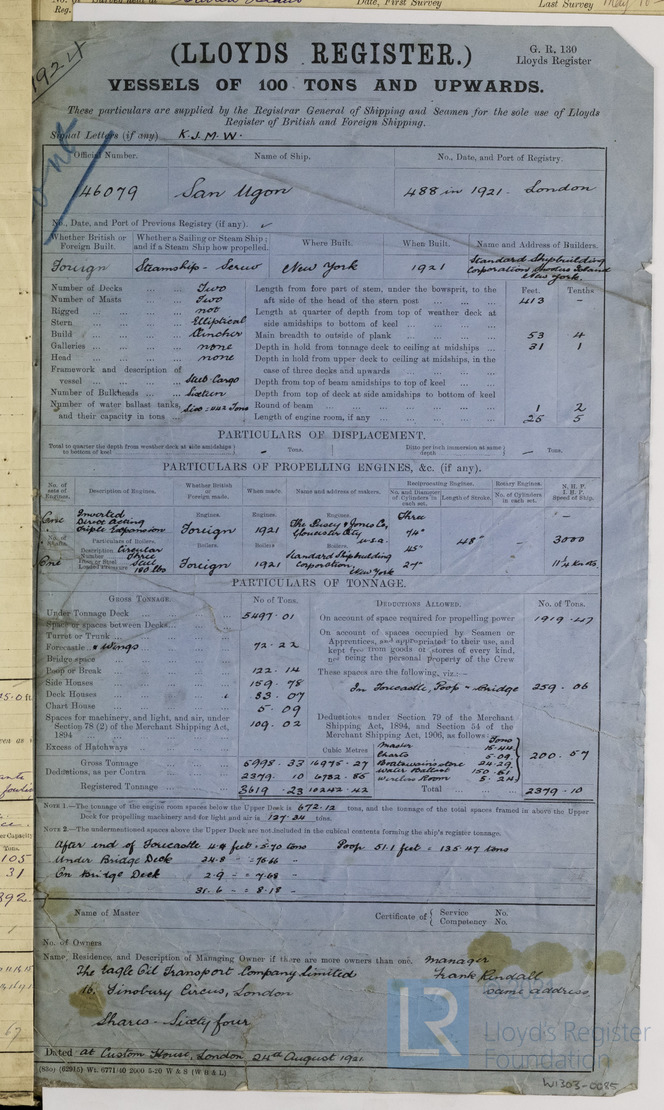 Date, First Survey
Last Survey May 10
Reg.
1924
(LLOYDS REGISTER.)
G. R. 130
Lloyds Register
VESSELS OF 100 TONS AND UPWARDS.
These particulars are supplied by the Registrar General of Shipping and Seamen for the sole use of Lloyds
Register of British and Foreign Shipping.
Signal Letters (if any) K.J.M.W.
Official Number. Name of Ship. No., Date, and Port of Registry.
146079 San Ugon 488 in 1921. London
No., Date, and Port of Previous Registry (if any).
Whether British or Foreign Built. Whether a Sailing or Steam Ship; and if a Steam Ship how propelled. Where Built. When Built. Name and Address of Builders.
Foreign Steamship - Screw New York 1921 Standard Shipbuilding Corporation, Shooters Island New York.
Feet. Tenths
Number of Decks Two
Number of Masts Two
Rigged not
Stern Elliptical
Build Clincher
Galleries none
Head none
Framework and description of vessel Steel. Cargo
Number of Bulkheads Sixteen
Number of water ballast tanks, and their capacity in tons Six = 442 Tons
Length from fore part of stem, under the bowsprit, to the aft side of the head of the stern post 413 -
Length at quarter of depth from top of weather deck at side amidships to bottom of keel
Main breadth to outside of plank 53 4
Depth in hold from tonnage deck to ceiling at midships 31 1
Depth in hold from upper deck to ceiling at midships, in the case of three decks and upwards
Depth from top of beam amidships to top of keel
Depth from top of deck at side amidships to bottom of keel
Round of beam 1 2
Length of engine room, if any 25 5
PARTICULARS OF DISPLACEMENT.
Total to quarter the depth from weather deck at side amidships to bottom of keel - Tons. Ditto per inch immersion at same depth - Tons.
PARTICULARS OF PROPELLING ENGINES, &c. (if any).
No. of sets of Engines. Description of Engines. Whether British or Foreign made. When made. Name and address of makers. Reciprocating Engines. Rotary Engines. N. H. P. I. H. P. Speed of Ship.
No. and Diameter of Cylinders in each set. Length of Stroke. No. of Cylinders in each set.
Engines. Engines. Engines.
One Inverted Direct Acting Triple Expansion Foreign 1921 The Pusey & Jones Co, Gloucester City U.S.A. Three 74" 45" 27" 48" - 3000 11¼ knots.
Particulars of Boilers. Boilers. Boilers Boilers
Description Circular
Number Three
Iron or Steel Steel
Loaded Pressure 190 lbs
One Foreign 1921 Standard Shipbuilding Corporation, New York
PARTICULARS OF TONNAGE.
GROSS TONNAGE. No of Tons. DEDUCTIONS ALLOWED. No. of Tons.
Under Tonnage Deck 5497.01
Space or spaces between Decks
Turret or Trunk
Forecastle & Wings 72.22
Bridge space
Poop or Break 122.14
Side Houses 159.78
Deck Houses 33.07
Chart House 5.09
Spaces for machinery, and light, and air, under Section 78 (2) of the Merchant Shipping Act, 1894 109.02
Excess of Hatchways
Cubic Metres
Gross Tonnage 5998.33 16975.27
Deductions, as per Contra 2379.10 6732.85
Registered Tonnage 3619.23 10242.42
On account of space required for propelling power 1919.47
On account of spaces occupied by Seamen or Apprentices, and appropriated to their use, and kept free from goods or stores of every kind, not being the personal property of the Crew
These spaces are the following, viz.:—
In Forecastle, Poop & Bridge 259.06
Deductions under Section 79 of the Merchant Shipping Act, 1894, and Section 54 of the Merchant Shipping Act, 1906, as follows:
Tons
Master 15.44
Charts 5.09
Boatswains store 24.29
Water Ballast 150.51
Wireless Room 5.24
200.57
Total 2379.10
NOTE 1.—The tonnage of the engine room spaces below the Upper Deck is 672.12 tons, and the tonnage of the total spaces framed in above the Upper
Deck for propelling machinery and for light and air is 127.34 tons.
NOTE 2.—The undermentioned spaces above the Upper Deck are not included in the cubical contents forming the ship's register tonnage.
After end of Forecastle 4.4 feet = 5.70 tons Poop 51.1 feet = 135.47 tons
Under Bridge Deck 24.8 " = 76.66 "
On Bridge Deck 2.9 " = 7.68 "
31.6 " = 8.18 "
Name of Master Certificate of { Service No. Competency No.
No. of Owners
Name, Residence, and Description of Managing Owner if there are more owners than one.
The Eagle Oil Transport Company Limited
16. Finsbury Circus, London
Manager
Frank Kendall
same address
Shares - Sixty four
Dated at Custom House, London 24th August 1921
(830) (62915) Wt. 6771/40 2000 5-20 W & S (W H & L)
LR
Lloyd's Register
Foundation
W1303-0085